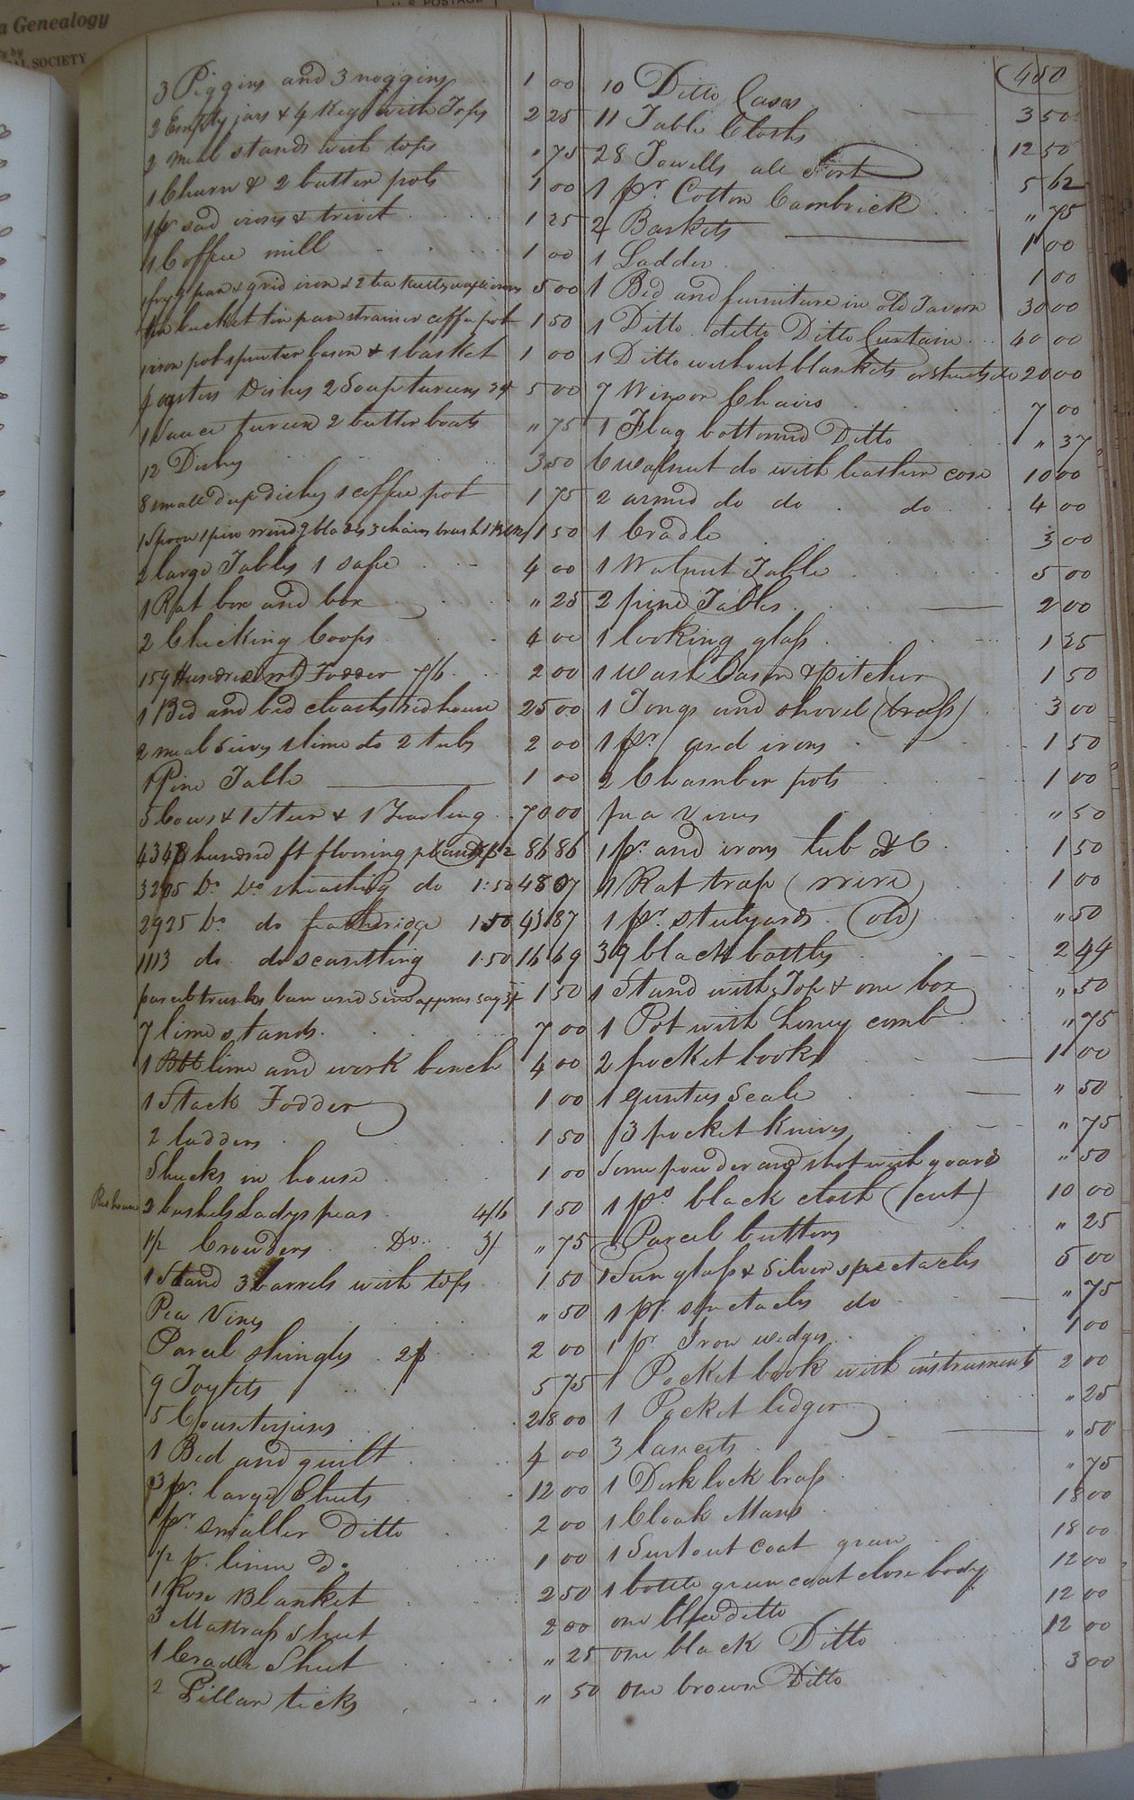 a Genealogy
SOCIETY
U.S. POSTAGE
400
3 Piggins and 3 noggins 1 00
2 Empty jars & 4 Kegs with Tops 2 25
2 meal stands with tops " 75
1 Churn & 2 butter pots 1 00
1 pr sad irons & trivet 1 25
1 Coffee mill 1 00
1 frying pan & grid iron & 2 tea kettles waffle irons 5 00
bucket tin pan strainer coffe pot 1 50
1 iron pot spunter bason & 1 basket 1 00
Dishes 2 Soup tureens 5 00
1 Sauce tureen 2 butter boats " 75
12 Dishes 3 50
8 small deep dishes 1 coffee pot 1 75
1 Spoon 3 chairs brush 1 50
2 large Tables 1 safe 4 00
1 Rat box and box " 25
2 Chicking Coops 4 00
Fodder 7/6 2 00
1 Bed and bed cloaths house 25 00
2 meal Sives 1 lime do 2 tubs 2 00
1 Pine Table 1 00
5 Cows & 1 Steer & 1 Yearling 70 00
4343 hundred ft flooring plank 2 86 86
3205 Do Do sheathing do 1.50 48 07
2925 Do do 1.50 43 87
1113 do do scantling 1.50 16 69
parcel trunks 1 50
7 lime stands 7 00
1 lime and work bench 4 00
1 Stack Fodder 1 00
2 ladders 1 50
Shucks in house 1 00
2 bushels Ladys peas 4/6 1 50
1/2 Crowders Do 3/ " 75
1 Stand 3 barrels with tops 1 50
Pea Vines " 50
Parcel shingles 2 00
9 Toylets 5 75
5 Counterpins 28 00
1 Bed and quilt 4 00
3 pr. large Sheets 12 00
1 pr smaller Ditto 2 00
1/2 pr. linen Do 1 00
1 Rose Blanket 2 50
3 Mattrass sheet 2 00
1 Cradle Sheet " 25
2 Pillow ticks " 50
10 Ditto Cases 3 50
11 Table Cloths 12 50
28 Towells all Sort 5 62
1 pr Cotton Cambrick " 75
2 Baskets 1 00
1 Ladder 1 00
1 Bed and furniture in old Tavern 30 00
1 Ditto ditto Ditto Curtain 40 00
1 Ditto without blankets or sheets do 20 00
7 Winsor Chairs 7 00
1 Flag bottomed Ditto " 37
6 walnut do with leathern 10 00
2 armed do do do 4 00
1 Cradle 3 00
1 Walnut Table 5 00
2 pine Tables 2 00
1 looking glass 1 25
1 wash bason & pitcher 1 50
1 Tongs and shovel (brass) 3 00
1 pr and irons 1 50
2 Chamber pots 1 00
pea vines " 50
1 pr and irons tub &C 1 50
1 Rat trap (wire) 1 00
1 pr. stulyards (old) " 50
39 black bottles 2 44
1 Stand with Top & one box " 50
1 Pot with honey comb " 75
2 pocket books 1 00
1 gunters Scale " 50
3 pocket Knives " 75
Some powder and shot with gourd " 50
1 ps black cloth (cut) 10 00
1 Parcel buttons " 25
1 Sun glass & Silver spectacles 5 00
1 pr spectacles do " 75
1 pr Iron wedges 1 00
1 Pocket book with instruments 2 00
1 Pocket ledger " 25
3 lancets " 50
1 Desk lock brass " 75
1 Cloak Mans 18 00
1 Surtout coat green 18 00
1 bottle green coat close body 12 00
one blue ditto 12 00
one black Ditto 12 00
one brown Ditto 3 00